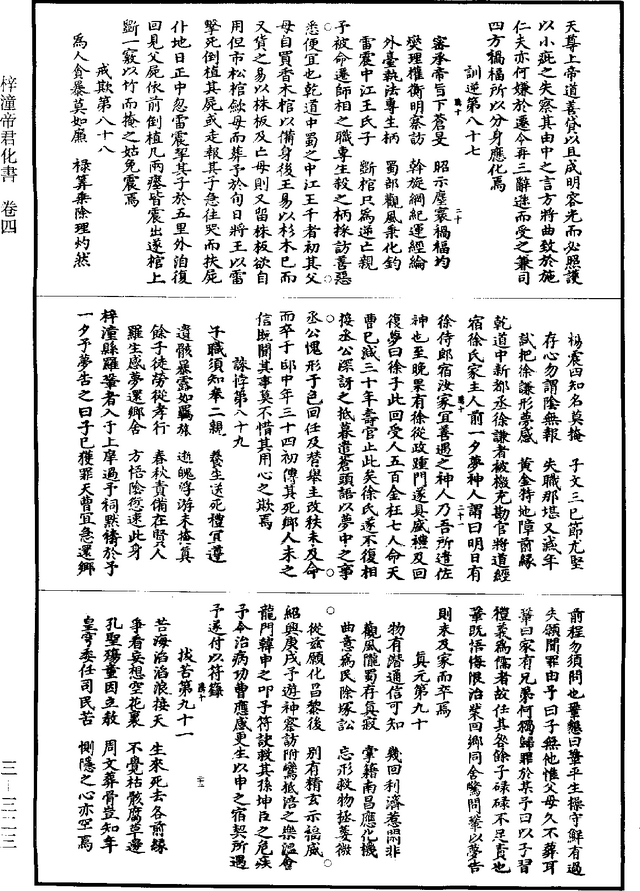 天尊上帝道善貸以且成明容光而必照護
以小疵之失察其由中之言方將曲致於施
仁夫亦何嫌於遷令再三辭遜而受之兼司
四方禍福所以分身應化焉
訓逆第八十七
密承帝旨下蒼旻　昭示塵寰禍福均
燮理權衡明察訪　幹旋綱紀運經綸
外臺執法專生柄　蜀部觀風秉化鈞
雷震中江王氏子　斷棺只為逆亡親
予被命遷師相之職專生殺之柄採訪善惡
悉便宜也乾道中蜀之中江王千者初其父
母自買香木棺以備身後王易以杉木已而
又貨之易以株板及亡母則又留株板欲自
用但市松棺斂母而葬予於旬日將王以雷
擊死倒植其屍或走報其子急往哭而扶屍
仆地日正中忽雷震挈其子於五里外泊復
回見父屍依前倒植凡兩瘞皆震出遂棺上
斷一竅以竹而掩之姑免震焉
戒欺第八十八
為人貪暴莫如廉　祿筭乘除理灼然
楊震四知名莫掩　子文三已節尤堅
存心勿謂陰無報　失職那堪又減年
試把徐謙形夢感　黃金特地障前緣
乾道中新都丞徐謙者被檄充勘官將道經
宿徐氏家主人前一夕夢神人謂曰明日有
徐侍郎宿汝家宜善遇之神人乃吾所遣佐
神也至晚果有徐從政踵門遂具盛禮及回
復夢曰徐子此回受人五百金枉七人命天
曹已減三十年壽官止此矣徐氏遂不復相
接丞公深訝之抵暮遣蒼頭語以夢中之事
丞公愧形于色回任及替舉主改秩未及命
而卒于邸中年三十四初傳其死鄉人未之
信既聞其事莫不惜其用心之欺焉
誅悖第八十九
子職須知奉二親　養生送死禮宜遵
遺骸暴露如羈旅　逝魄浮游未掩真
餘子徒勞從孝行　春秋責備在賢人
羅生感夢還鄉舍　方悟陰愆逮此身
梓潼縣羅鞏者入于上庠過予祠默禱於予
一夕予夢告之曰子已獲罪天曹宜急還鄉
前程勿須問也鞏懇曰鞏平生操守鮮有過
失願聞罪由予曰子無他惟父母久不葬耳
鞏曰家有兄弟何獨歸罪於某予曰以子習
禮義為儒者故任其咎餘子碌碌不足責也
鞏既悟悔恨治裝回鄉同舍驚問鞏以夢告
則未及家而卒焉
真元第九十
物有潛通信可知　幾回利濟惹閒非
觀風隴蜀存真寂　掌籍南昌應化機
曲意為民除塚訟　忘形救物拯憂微
從茲願化昌黎後　別有精玄示福威
紹興庚戌予遊神察訪附鸞抵涪之樂溫會
龍門韓申之叩予符訣救其孫坤臣之危疾
予令治病功曹應感更生以申之宿契所遇
予遂付以符籙
拔苦第九十一
苦海滔滔浪接天　生來死去各前緣
爭看妄想空花裏　不覺枯骸腐草邊
孔聖殤童因立敘　周文葬骨豈知年
皇穹委任司民苦　惻隱之心亦罕焉
梓潼帝君化書　卷四
三—三二三